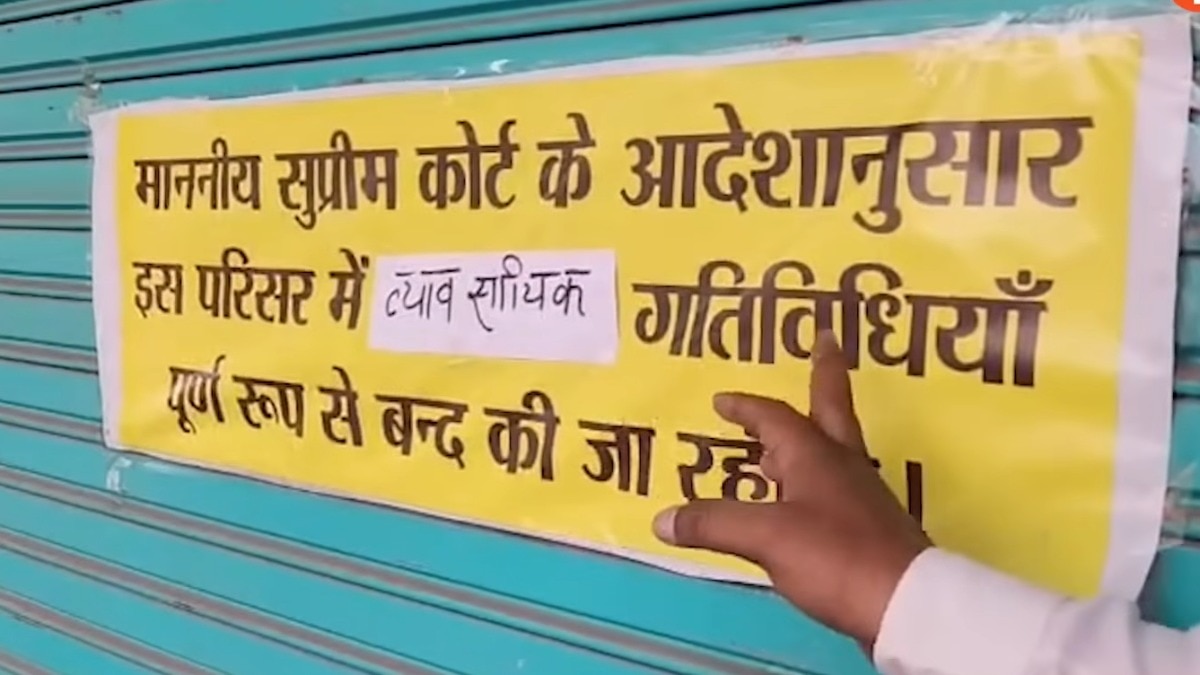 माननीय सुप्रीम कोर्ट के आदेशानुसार
इस परिसर में व्यावसायिक गतिविधियाँ
पूर्ण रूप से बन्द की जा